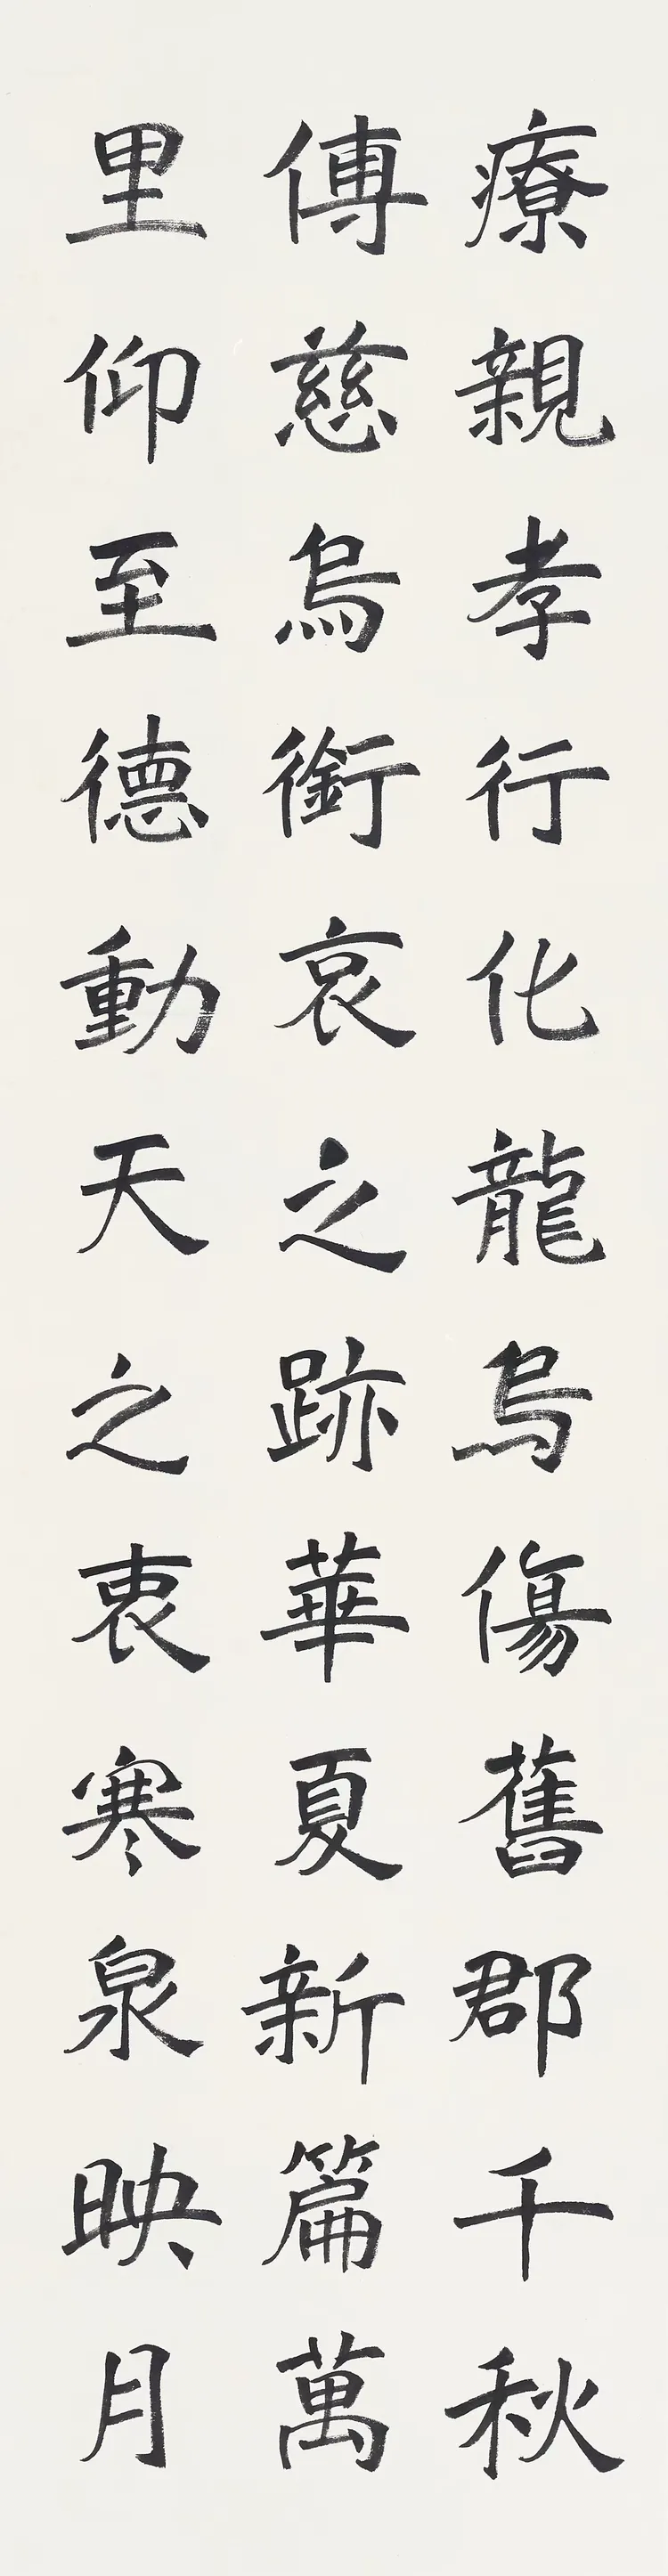 療親孝行化龍烏傷舊郡千秋
傳慈烏銜哀之跡華夏新篇萬
里仰至德動天之衷寒泉映月